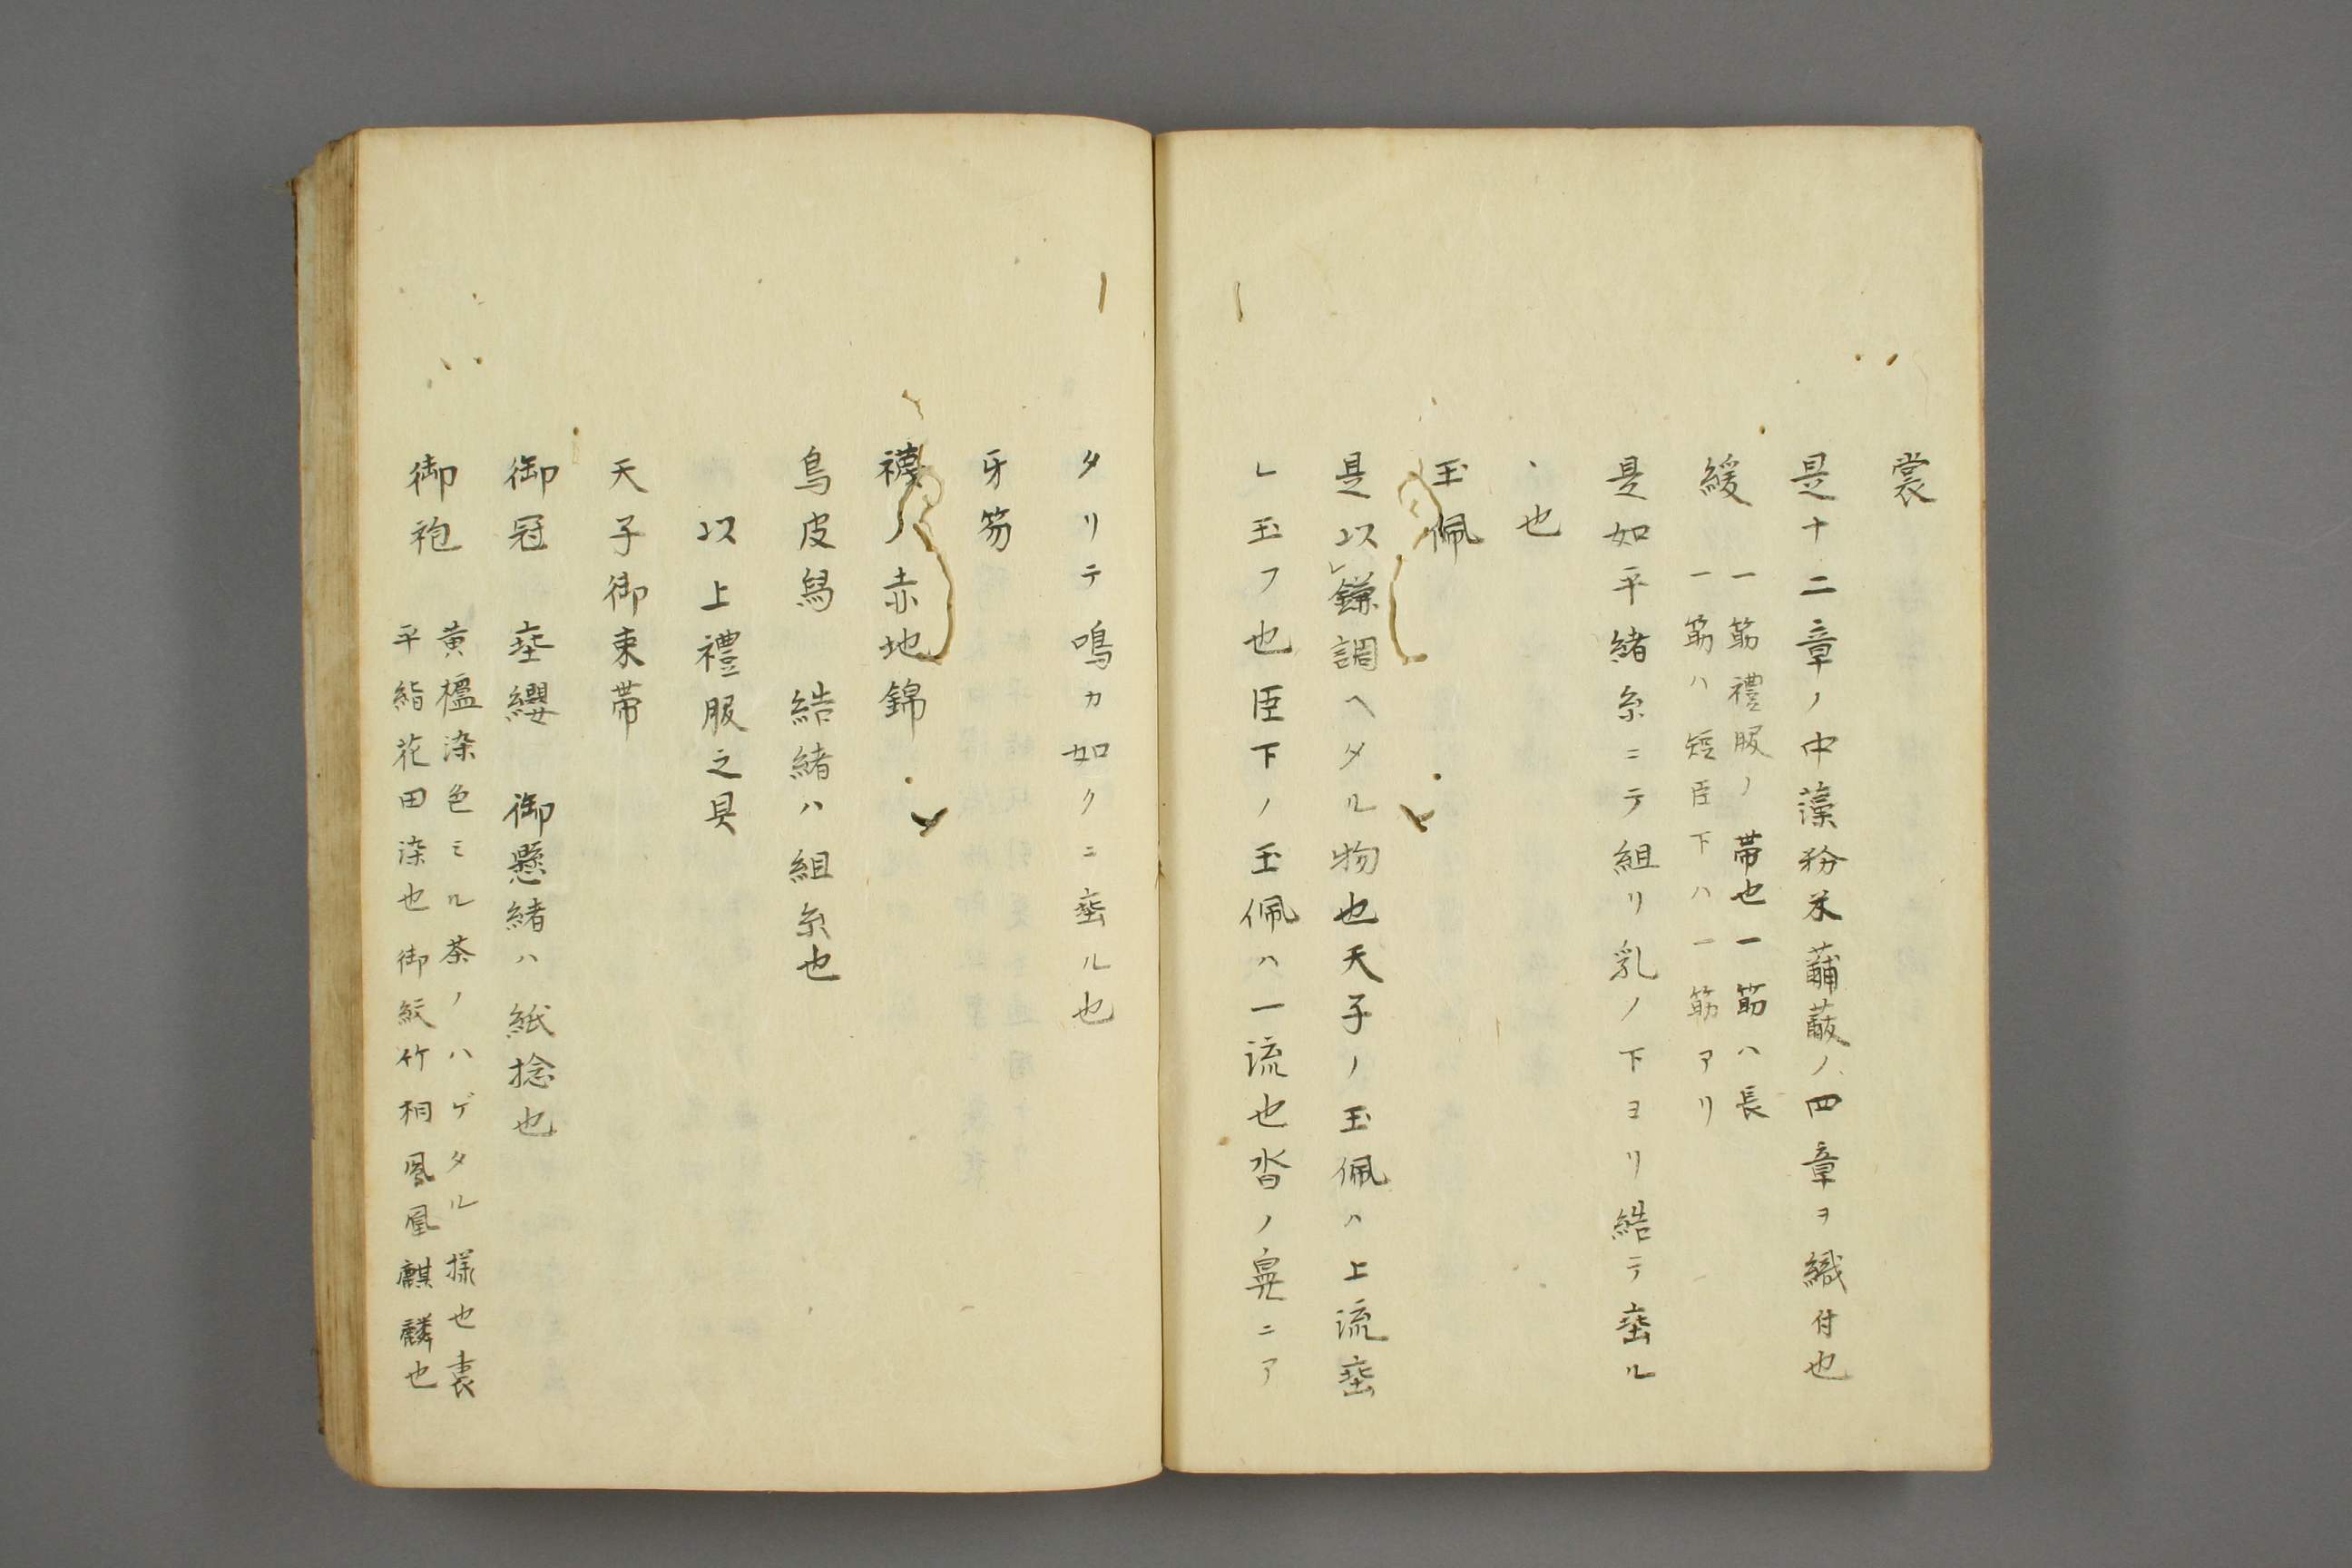 裳
是十二章ノ中藻粉米黼黻ノ四章ヲ織付也
綬
一筋禮服ノ帯也一筋ハ長
一筋ハ短臣下ハ一筋アリ
是如平緒糸ニテ組リ乳ノ下ヨリ結テ垂ル
、也
玉佩
是以鎌調ヘタル物也天子ノ玉佩ハ上流垂
レ玉フ也臣下ノ玉佩ハ一流也沓ノ鼻ニア
タリテ鳴カ如クニ垂ル也
牙笏
襪ハ赤地錦
烏皮舄 結緒ハ組糸也
以上禮服之具
天子御束帯
御冠 垂纓 御懸緒ハ紙捻也
御袍
黄櫨染色ミル茶ノハゲタル様也裏
平絹花田染也御紋竹桐鳳凰麒麟也